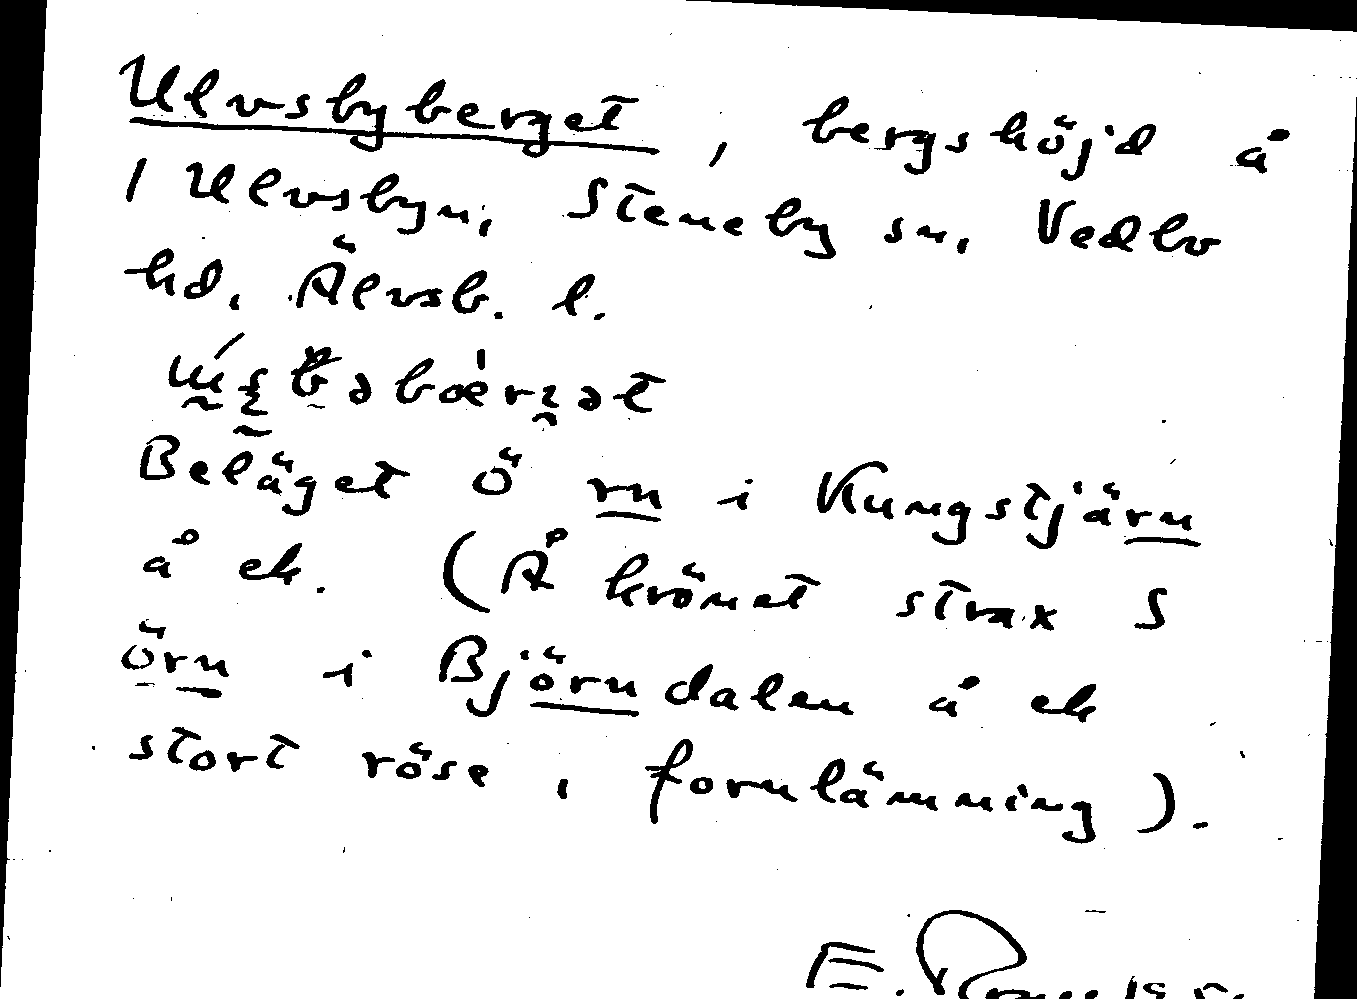 Ulvsbyberget, bergshöjd å
/ Ulvsbyn, Steneby sn, Vedbo
hd, Älvsb. l.
Beläget Ö rn i Kungstjärn
å ek. (Å krönet strax S
örn i Björndalen å ek
stort röse, fornlämning).
E.